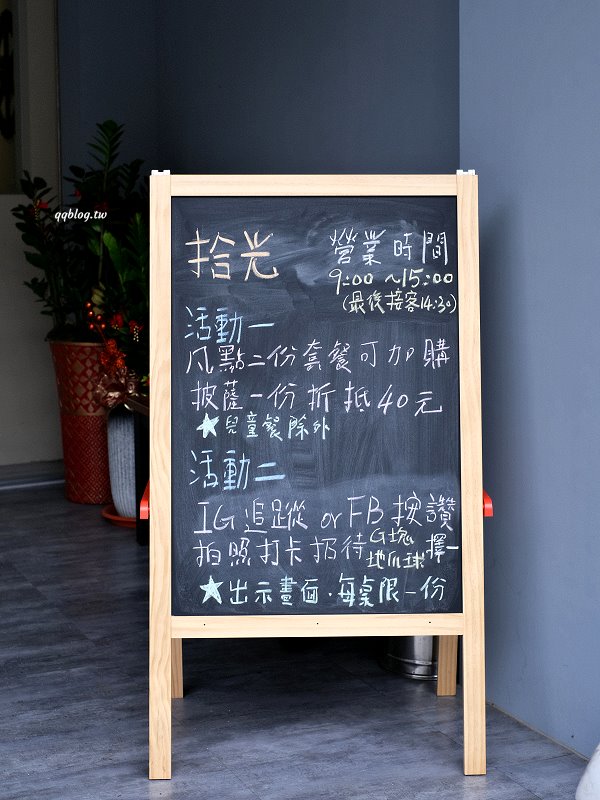 qqblog.tw
拾光
營業時間
9:00~15:00
(最後接客14:30)
活動一
凡點二份套餐可加購
披薩一份折抵40元
★兒童餐除外
活動二
IG追蹤 or FB按讚
拍照打卡招待G塊地瓜球擇一
★出示畫面.每桌限一份